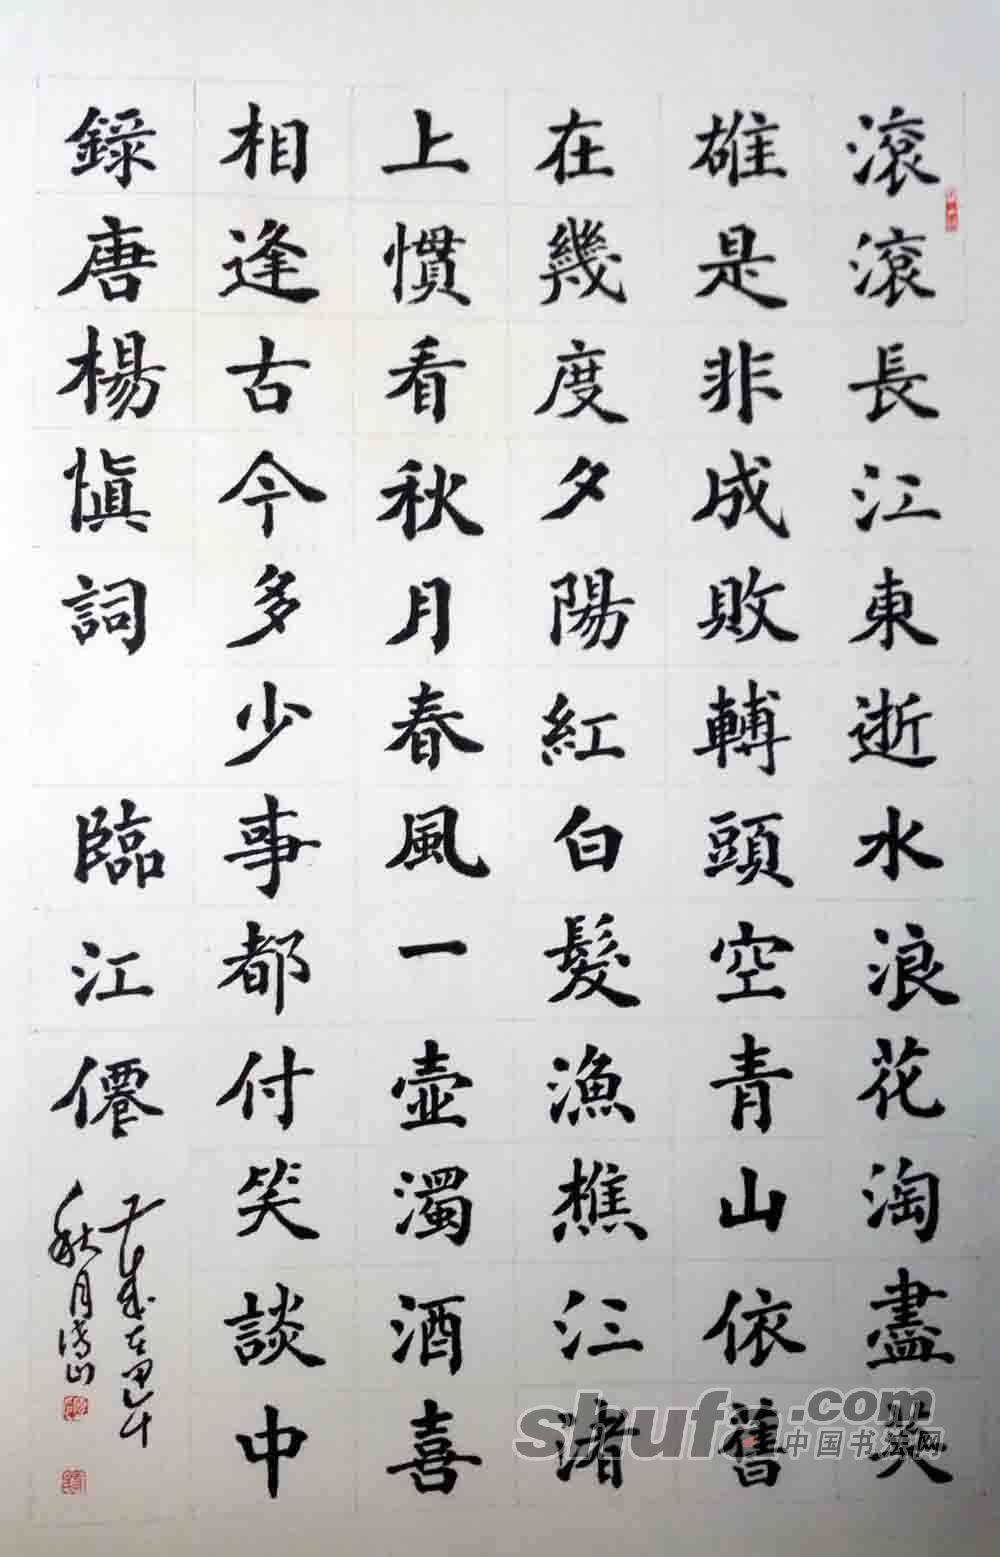 滾滾長江東逝水浪花淘盡英
雄是非成敗轉頭空青山依舊
在幾度夕陽紅白髮漁樵江渚
上慣看秋月春風一壺濁酒喜
相逢古今多少事都付笑談中
錄唐楊愼詞 臨江僊
秋月
shufa.com
中国书法网